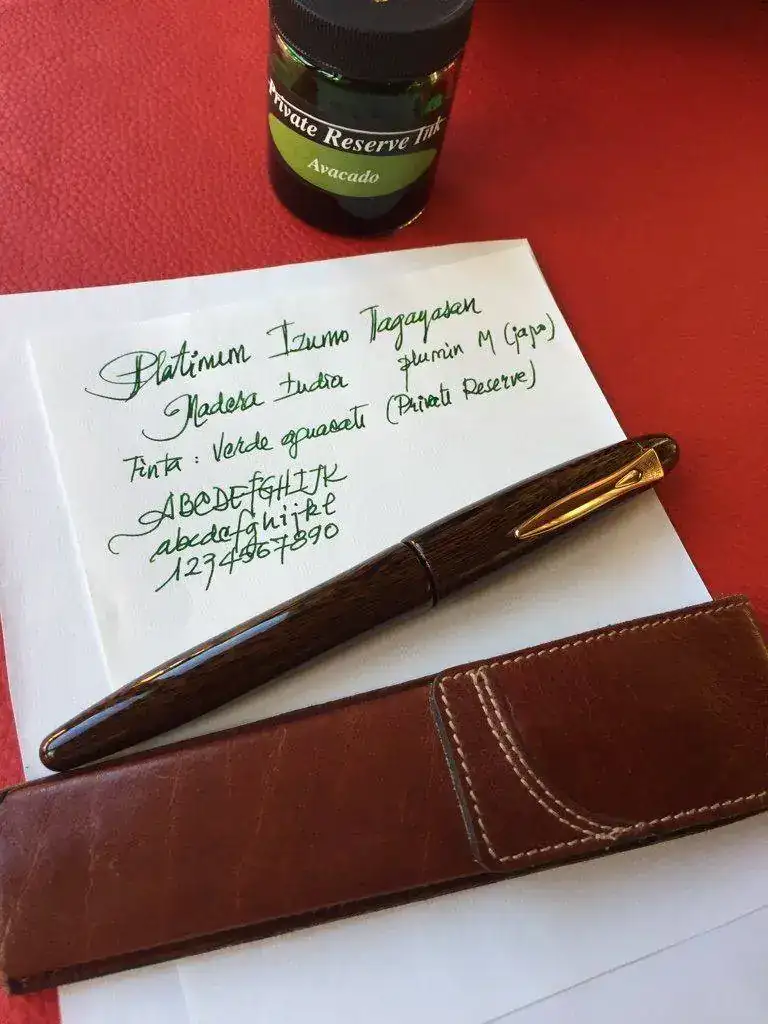 Private Reserve Ink
Avacado
Platinum Izumo Tagayasan
Madera India plumin M (japo)
Tinta : Verde aguacate (Private Reserve)
ABCDEFGHIJK
abcdefghijkl
1234567890